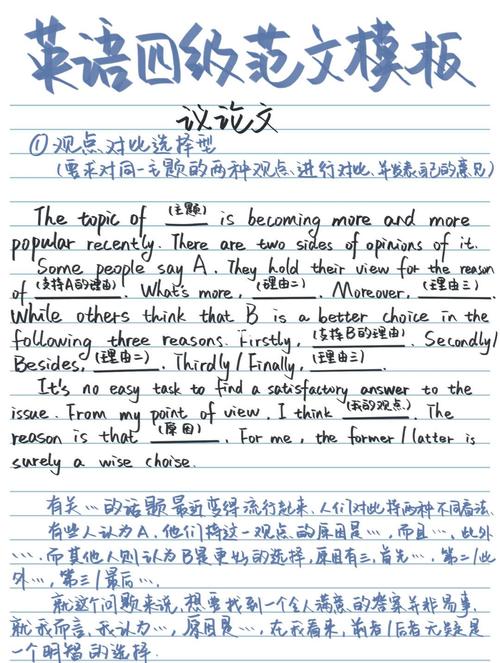 英语四级范文模板
议论文
①观点对比选择型
(要求对同一主题的两种观点进行对比,并发表自己的意见)
The topic of (主题) is becoming more and more
popular recently. There are two sides of opinions of it.
Some people say A. They hold their view for the reason
of (支持A的理由). What's more, (理由二). Moreover, (理由三).
While others think that B is a better choice in the
following three reasons. Firstly, (支持B的理由). Secondly/
Besides, (理由二). Thirdly/Finally, (理由三).
It's no easy task to find a satisfactory answer to the
issue. From my point of view, I think (我的观点). The
reason is that (原因). For me, the former/latter is
surely a wise choise.
有关…的话题最近变得流行起来,人们对此持两种不同看法.
有些人认为A,他们持这一观点的原因是…,而且…,此外
….而其他人则认为B是更好的选择,原因有三,首先…,第二/此
外…,第三/最后….
就这个问题来说,想要找到一个令人满意的答案并非易事,
就我而言,我认为…,原因是…,在我看来,前者/后者无疑是
一个明智的选择.